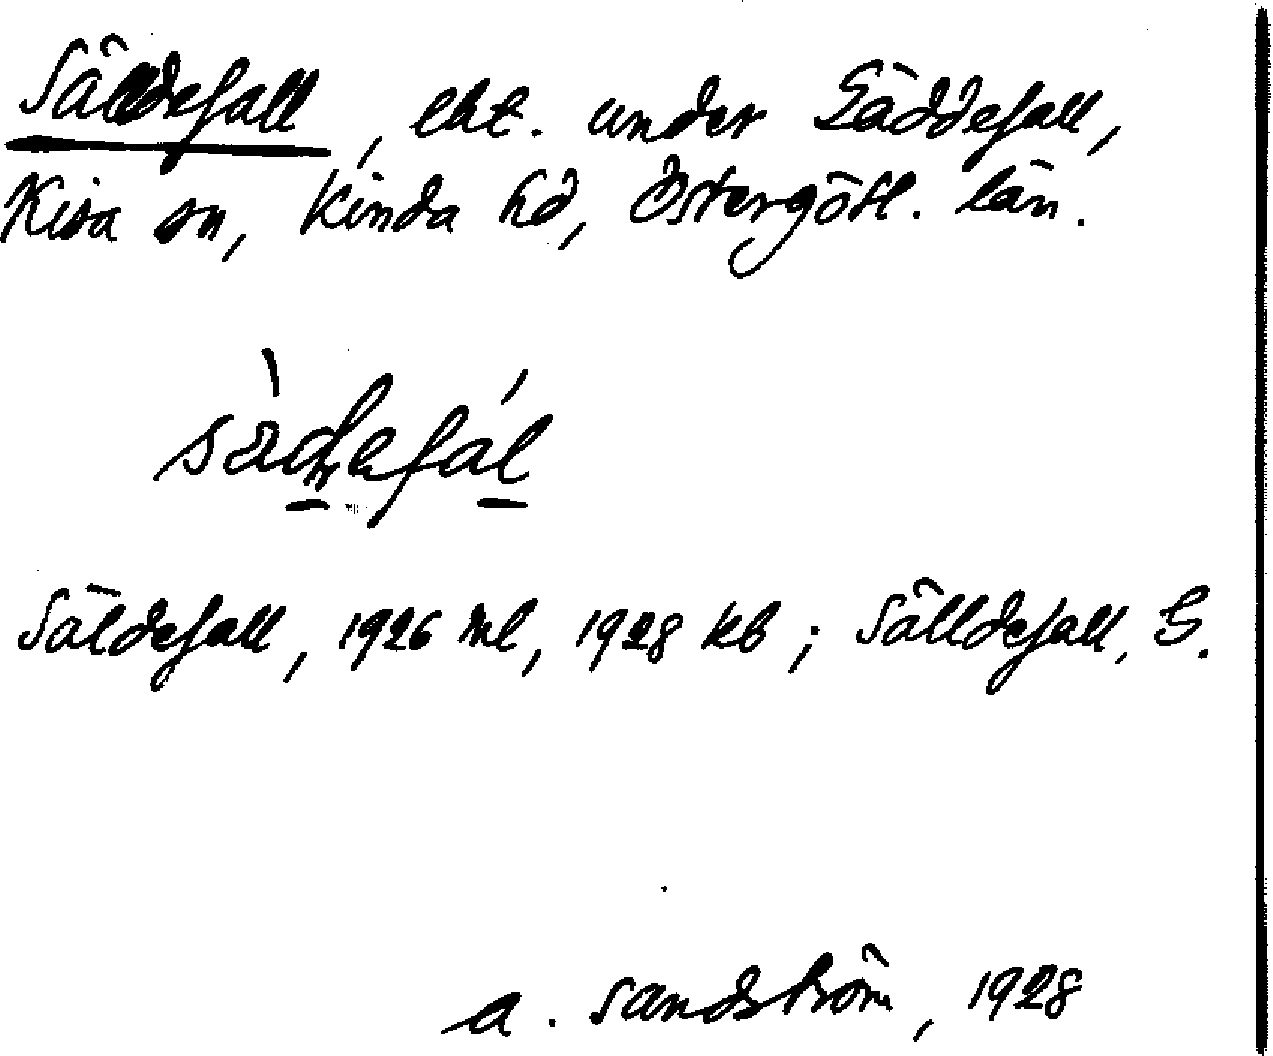 Säldefall, lht. under Läddefall,
Kisa sn, Kinda hd, Östergötl. län.
Säldefall, 1926 ml, 1928 kb; Sälldefall, G.
A. Sandström, 1928